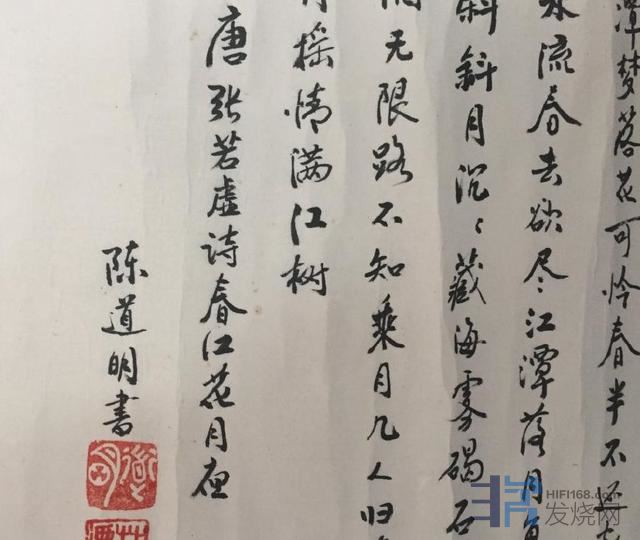 潭梦落花可怜春半不还
水流春去欲尽江潭落月复
斜斜月沉〻藏海雾碣石
无限路不知乘月几人归
月摇情满江树
唐张若虚诗春江花月夜
陈道明书
HIFI168.com
发烧网